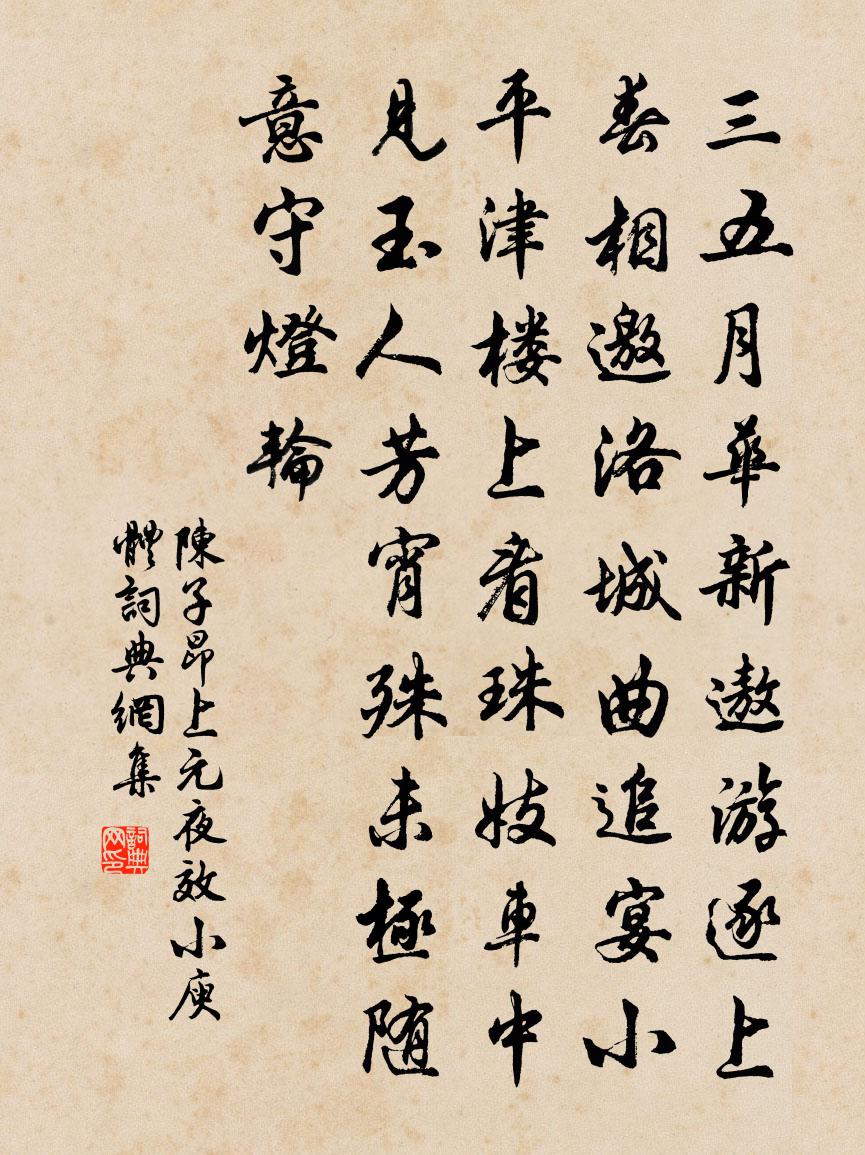 三五月華新遨游逐上
春相邀洛城曲追宴小
平津楼上看珠妓車中
見玉人芳宵殊未極随
意守燈輪
陳子昂上元夜效小庾
體詞典網集
詞典网印